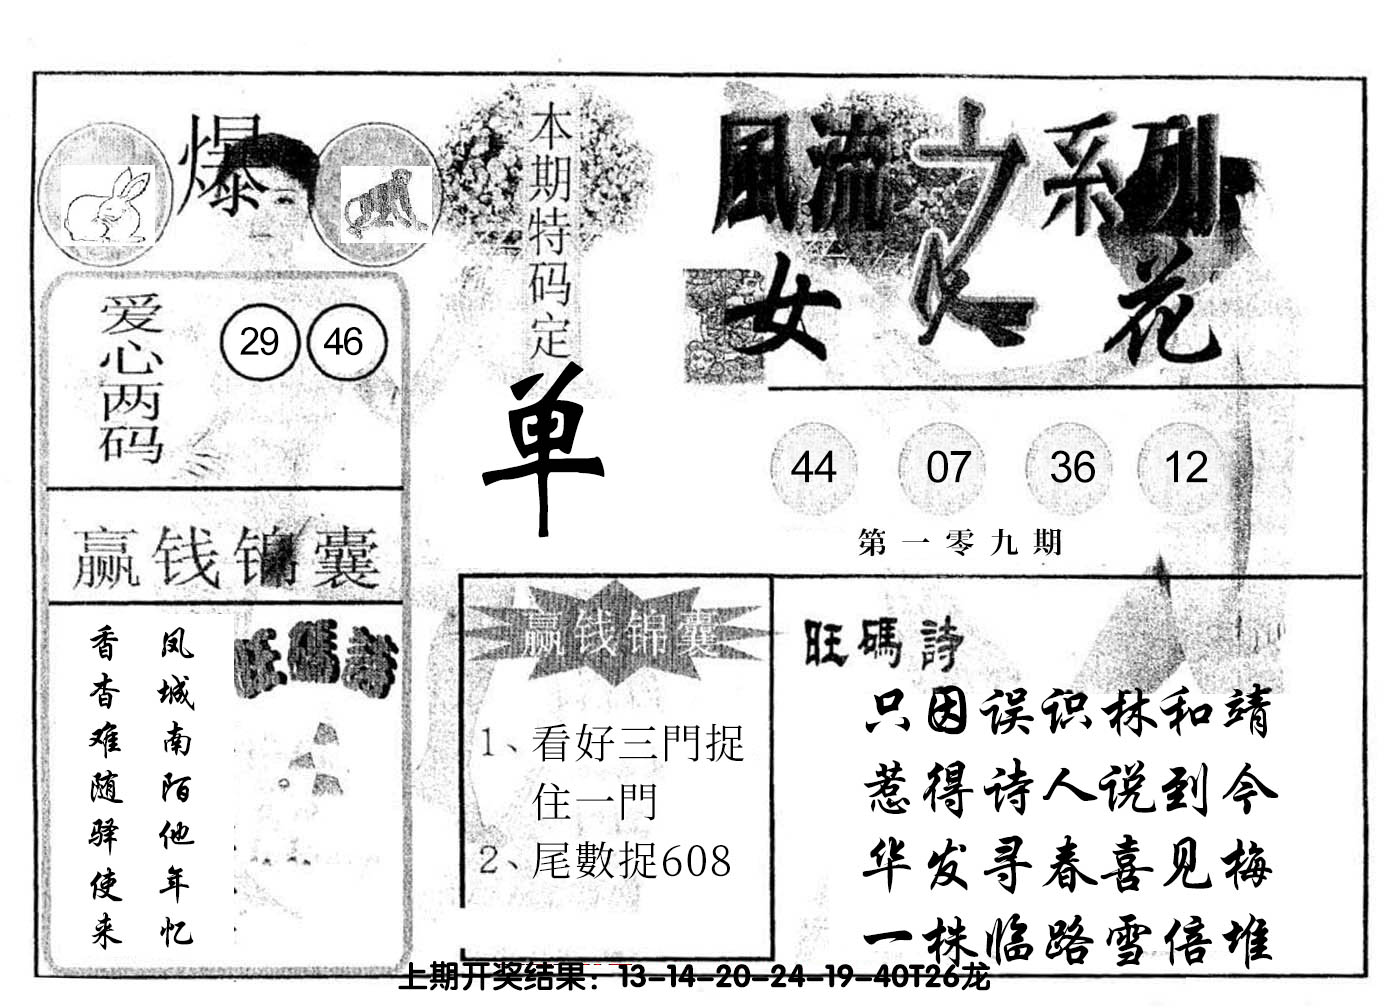 爆
本期特码定
单
風流之系列
女人花
爱心两码
29 46
44 07 36 12
第一零九期
赢钱锦囊
凤城南陌他年忆
香杳难随驿使来
旺碼詩
赢钱锦囊
1、看好三門捉
住一門
2、尾數捉608
旺碼詩
只因误识林和靖
惹得诗人说到今
华发寻春喜见梅
一株临路雪倍堆
上期开奖结果：13-14-20-24-19-40T26龙